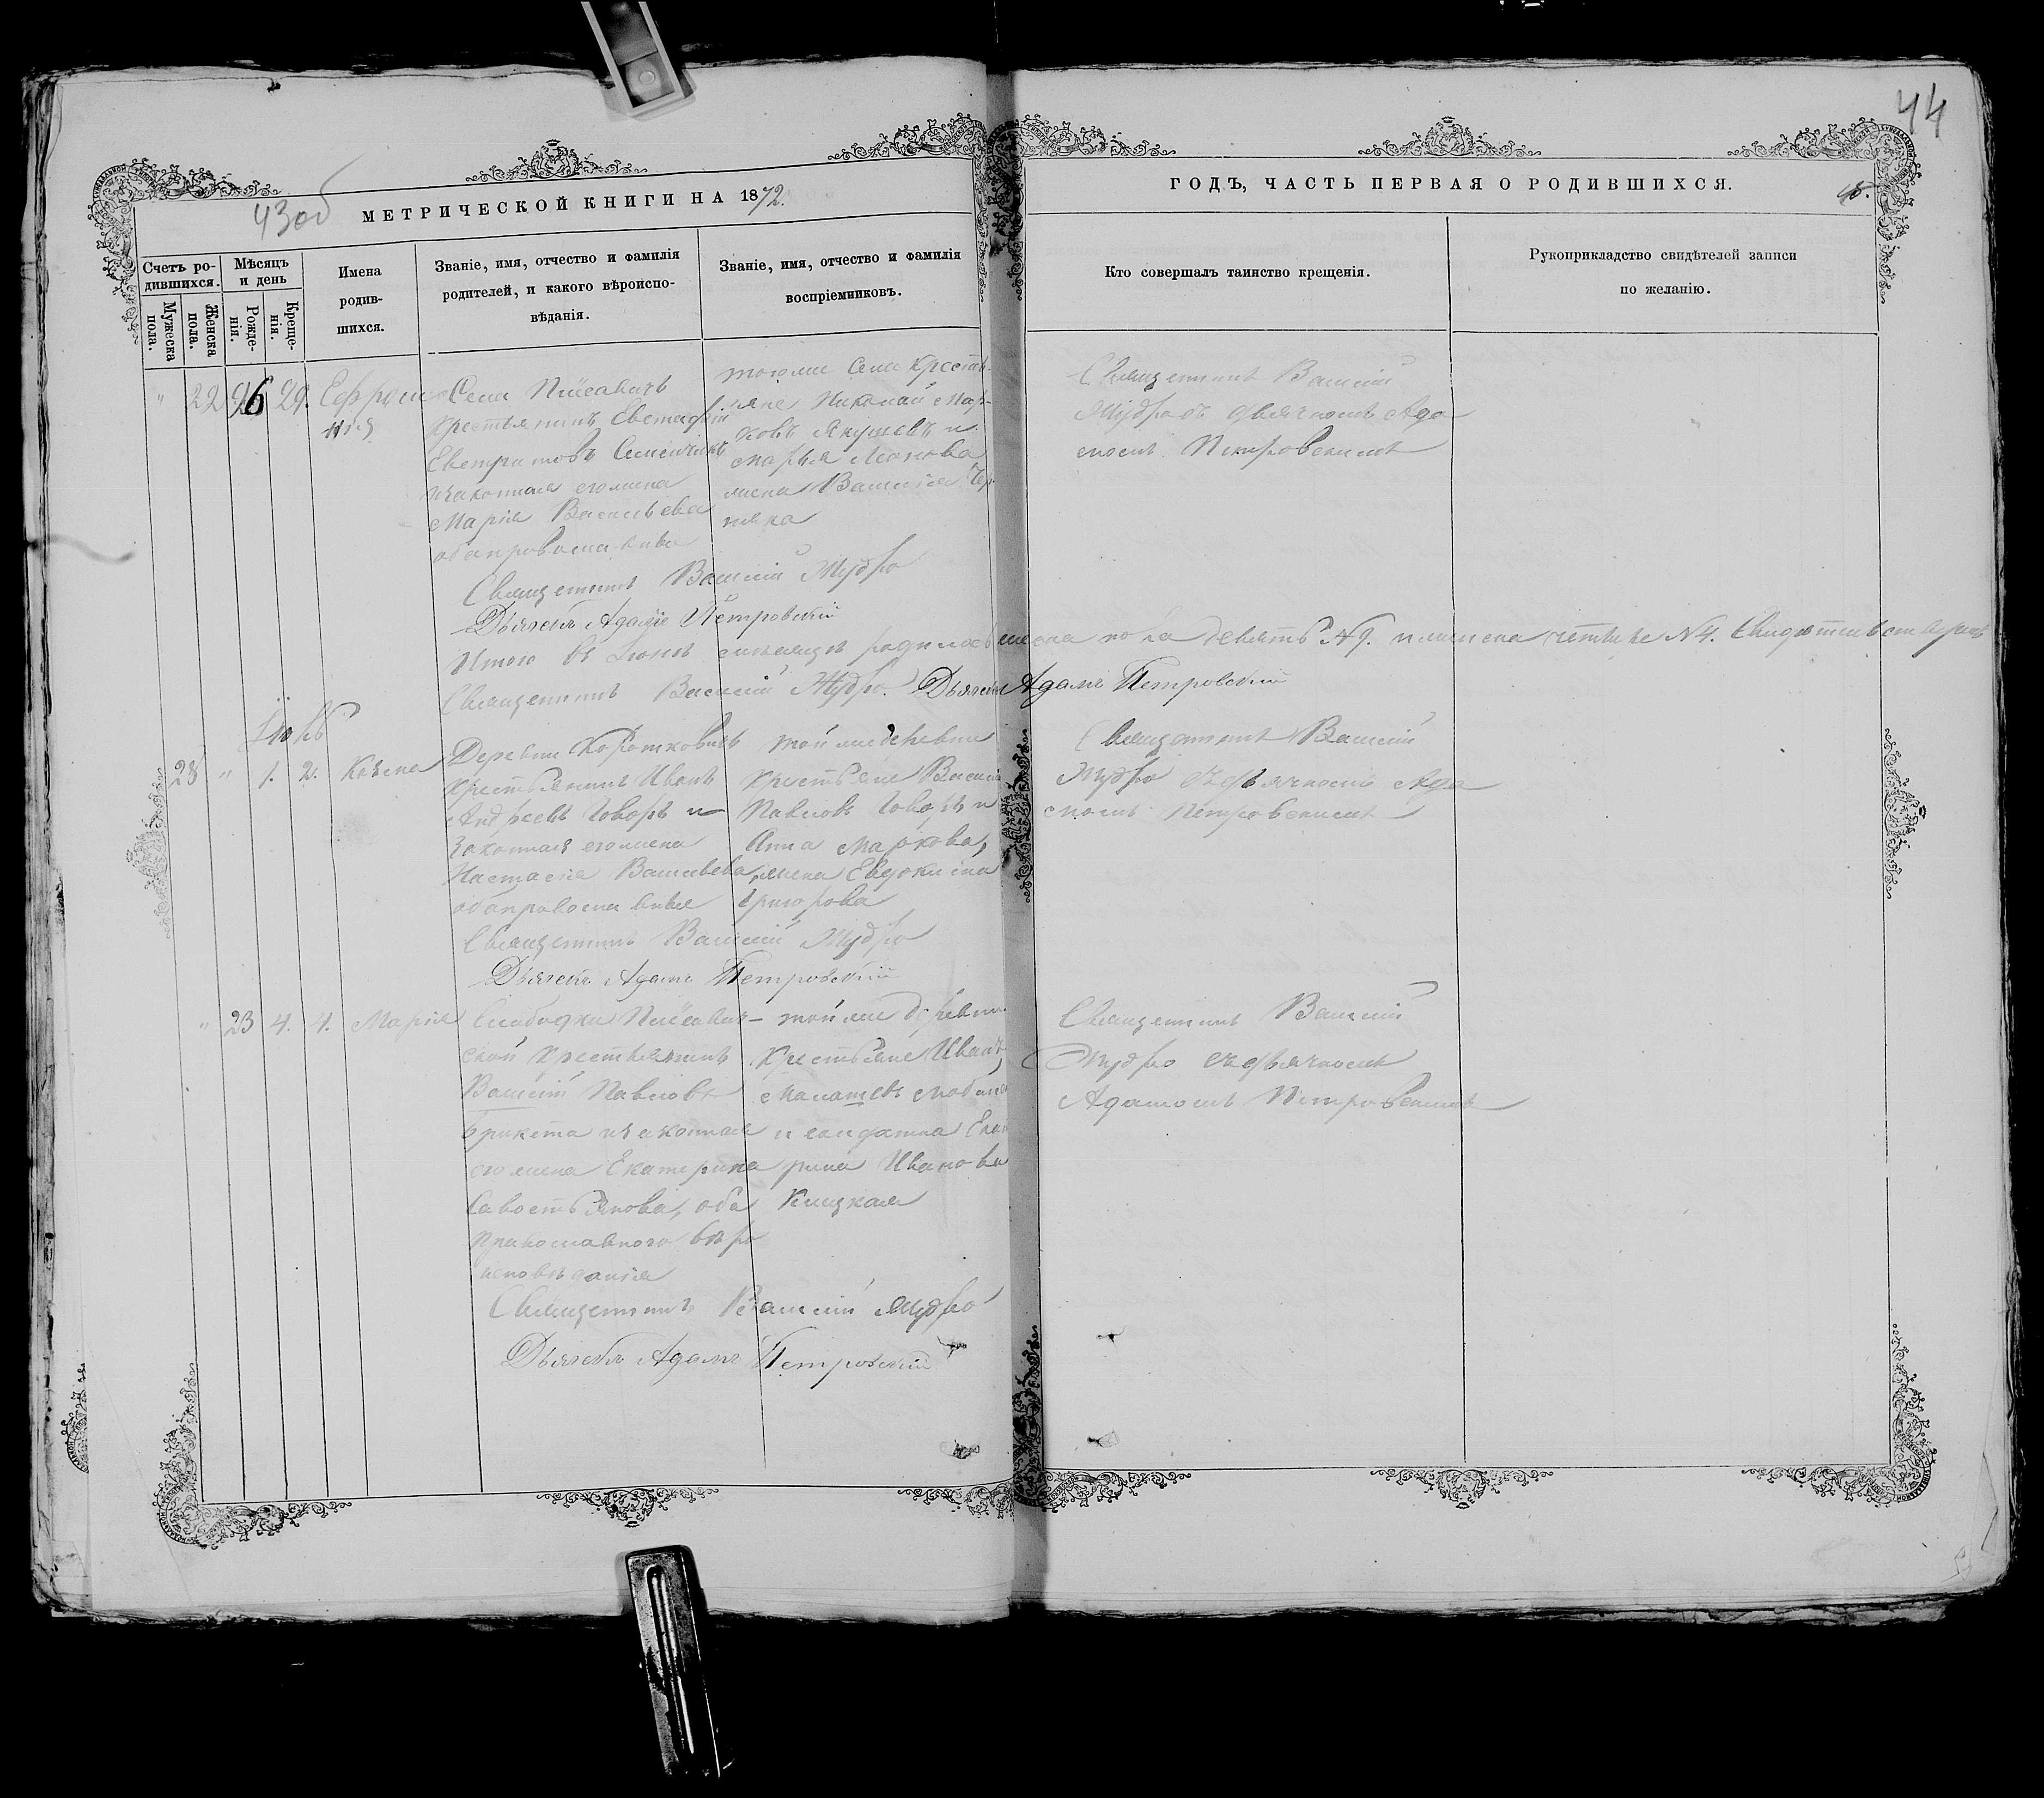 44
43об
МЕТРИЧЕСКОЙ КНИГИ НА 1872.
ГОДЪ, ЧАСТЬ ПЕРВАЯ О РОДИВШИХСЯ.
Счетъ ро-
дившихся.
Мужеска
пола.
Женска
пола.
Мѣсяцъ
и день
Рожде-
нія.
Креще-
нія.
Имена
родив-
шихся.
Званіе, имя, отчество и фамилія
родителей, и какого вѣроиспо-
вѣданія.
Званіе, имя, отчество и фамилія
воспріемниковъ.
Кто совершалъ таинство крещенія.
Рукоприкладство свидѣтелей записи
по желанію.
" 22 26 29. Ефроси
нія
Села
крестьянинъ
законная его жена
Марія Васильева
оба православные
тогоже села крестья-
яне Николай Мар-
ковъ Якушевъ и
Марья
жена Василія
Священникъ Василій
Мудро съ дьячкомъ Ада
момъ Петровскимъ
Священникъ Василій Мудро
Дьячекъ Адамъ Петровскій
Итого въ Іюнѣ мѣсяцѣ родилось мужеска пола девять №9. и женска четыре №4.
Священникъ Василій Мудро. Дьячекъ Адамъ Петровскій
Іюль
28 " 1. 2. Козма
Деревни
крестьянинъ Иванъ
Андреевъ Говоръ и
законная его жена
Настасія Васильева,
оба православные
той же деревни
крестьяне Василій
Павловъ Говоръ и
Анна Маркова,
жена Евдокима
Григорова
Священникъ Василій
Мудро съ дьячкомъ Ада
момъ Петровскимъ
Священникъ Василій Мудро
Дьячекъ Адамъ Петровскій
" 23 4. 4. Марія
Слободки
ской крестьянинъ
Василій Павловъ
и законная
его жена Екатерина
Савостьянова, оба
православнаго вѣро
исповѣданія
той же деревни
крестьяне Иванъ
и солдатка
рина Иванова
Священникъ Василій
Мудро съ дьячкомъ
Адамомъ Петровскимъ
Священникъ Василій Мудро
Дьячекъ Адамъ Петровскій